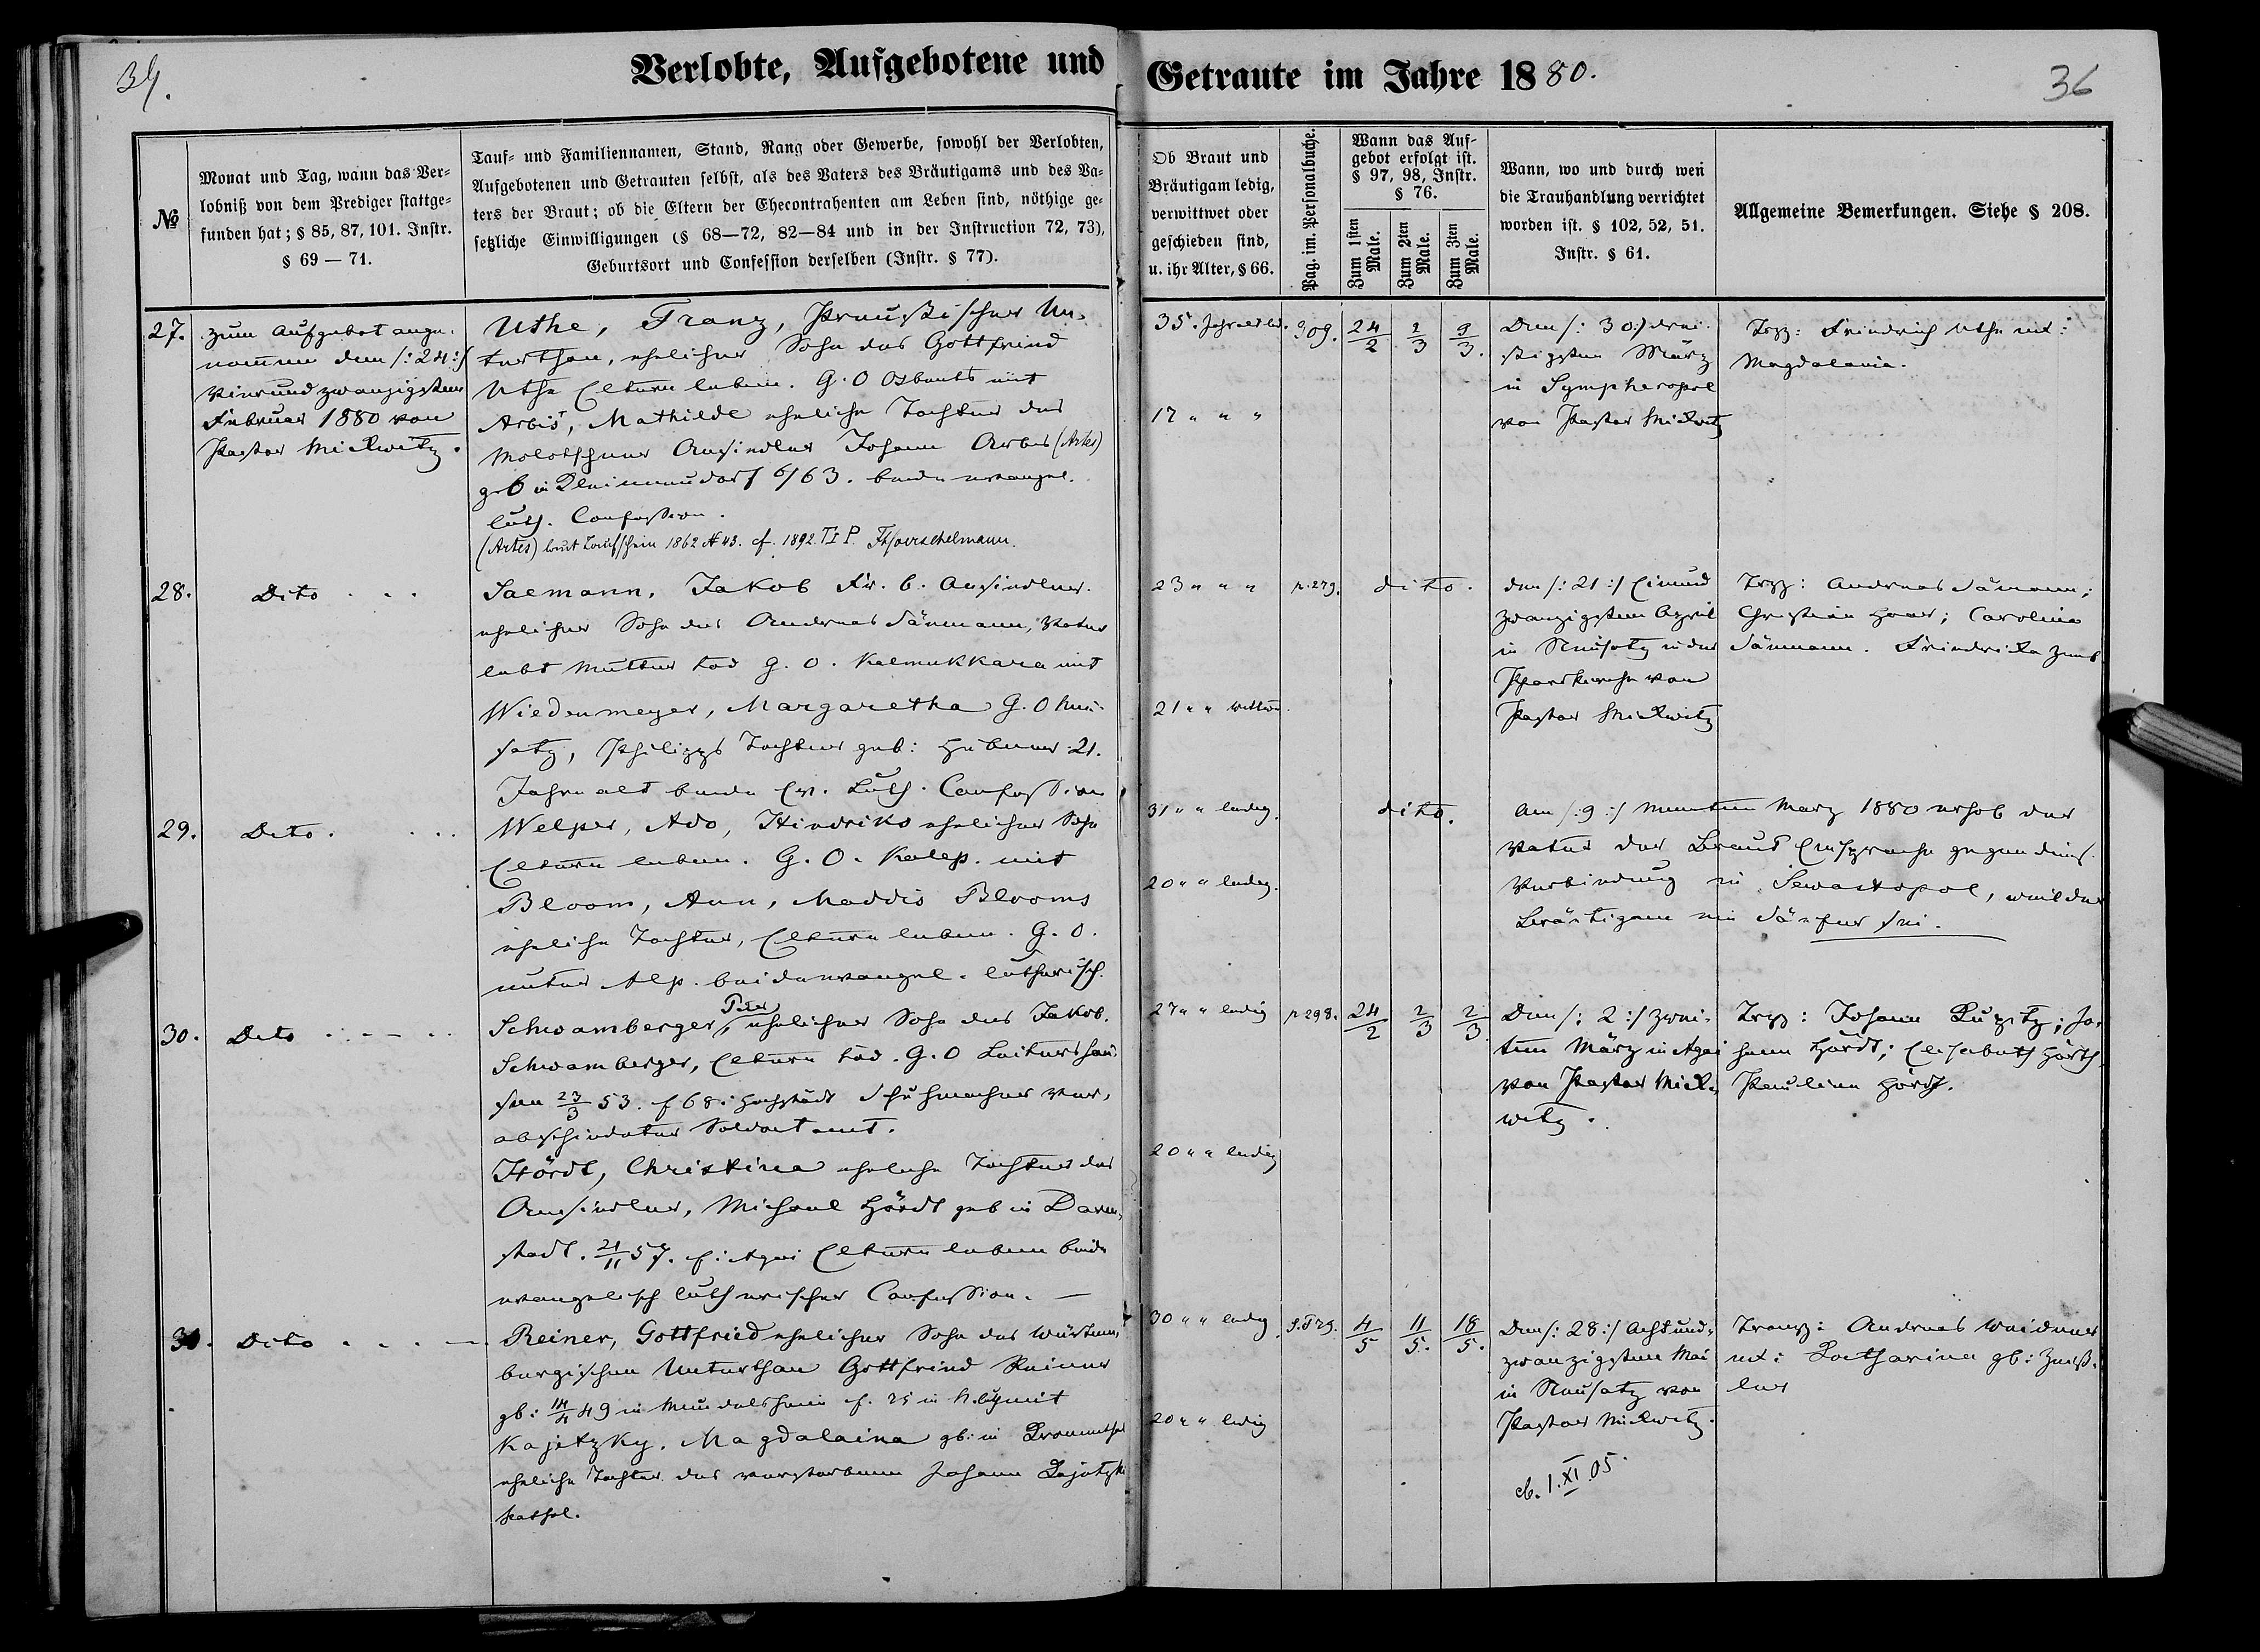 34.
Verlobte, Aufgebotene und Getraute im Jahre 1880.
36
№
Monat und Tag, wann das Ver-
lobniß von dem Prediger stattge-
funden hat; § 85, 87, 101. Instr.
§ 69 — 71.
Tauf- und Familiennamen, Stand, Rang oder Gewerbe, sowohl der Verlobten,
Aufgebotenen und Getrauten selbst, als des Vaters des Bräutigams und des Va-
ters der Braut; ob die Eltern der Ehecontrahenten am Leben sind, nöthige ge-
setzliche Einwilligungen (§ 68—72, 82—84 und in der Instruction 72, 73),
Geburtsort und Confession derselben (Instr. § 77).
Ob Braut und
Bräutigam ledig,
verwittwet oder
geschieden sind,
u. ihr Alter, § 66.
Pag. im. Personalbuche.
Wann das Auf-
gebot erfolgt ist.
§ 97, 98, Instr.
§ 76.
Zum 1sten
Male.
Zum 2ten
Male.
Zum 3ten
Male.
Wann, wo und durch wen
die Trauhandlung verrichtet
worden ist. § 102, 52, 51.
Instr. § 61.
Allgemeine Bemerkungen. Siehe § 208.
27.
zum Aufgebot ange-
nommen den /: 24 :/
Vierundzwanzigsten
Februar 1880 von
Pastor Mickwitz.
Uthe, Franz, Preußischer Un-
terthan, ehelicher Sohn des Gottfried
Uthe Eltern leben. G. O mit
Arbis, Mathilde eheliche Tochter des
Molotschner Ansiedler Johann Arbes (Artes)
geb in 6/63. beide evangel.
luth. Confession.
(Artes) laut Taufschein 1862 № 43. cf. 1892. P. Thoerschelmann.
35. Jahr led.
17 " " "
309.
24/2
2/3
9/3.
Den /: 30 :/ drei-
ßigsten März
in Sympheropol
von Pastor Mickwitz
Trzz: Friedrich Uthe
Magdalena.
28.
Dito . . .
Saemann, Jakob Fr. b. Ansiedler.
ehelicher Sohn des Andreas Sämann, Vater
lebt Mutter tod G. O. Kalmukkara mit
Wiedenmeyer, Margaretha G. O Neu-
satz, Philipps Tochter geb: Hubener 21.
Jahre alt beide Ev. Luth. Confession
23 " " "
21 " " Wittwe.
p. 279.
dito.
den /: 21 :/ Einund
zwanzigsten April
in Neusatz in der
Pfarrkirche von
Pastor Mickwitz
Trzz: Andreas Sämann;
Christian ; Carolina
Sämann. Friedrika
29.
Dito . . .
Welper, Ado, Hindriks ehelicher Sohn
Eltern leben. G. O. Kalep. mit
Bloom, Ann, Maddis Blooms
eheliche Tochter, Eltern leben. G. O.
unter Alp. beide evangel. lutherisch.
31 " " ledig.
20 " " ledig.
dito.
Am /: 9 :/ Neunten März 1880 erhob der
Vater der Braut Einsprache gegen diese
Verbindung in Sewastopol, weil der
Bräutigam ein Säufer sei.
30.
Dito . . — . .
Schwamberger, Peter ehelicher Sohn des Jakob.
Schwamberger, Eltern tod. G. O Leitershau-
sen 23/3 53. f 68. Hochstädt Schuhmacher ver-
abschiedeter Soldat mit.
Hördt, Christina eheliche Tochter des
Ansiedler, Michael Hördt geb in Darm-
stadt. 21/11 57. f: Agai Eltern leben beide
evangelisch lutherischer Confession. —
27 " " ledig
20 " " ledig
p 298.
24/2
2/3
2/3.
Den /: 2 :/ zwei-
ten März in Agai
von Pastor Mick-
witz.
Trzz: Johann ; Jo-
hann Hördt; Elisabeth Hördt,
Paulina Hördt.
31.
Dito . . . —
Reiner, Gottfried ehelicher Sohn des Würtem-
bergischen Unterthan Gottfried Reiner
gb: 14/4 49 in Mundelsheim f. 25 in mit
Kajetzky, Magdalaina gb: in Kronenthal
eheliche Tochter des verstorbenen Johann Kajetzki
kathol.
30 " " ledig
20 " " ledig
4/5
11/5.
18/5.
Den /: 28 :/ Acht und-
zwanzigsten Mai
in Neusatz von
Pastor Mickwitz.
1.XI.05.
Trauzz: Andreas Weidner
Katharina gb: